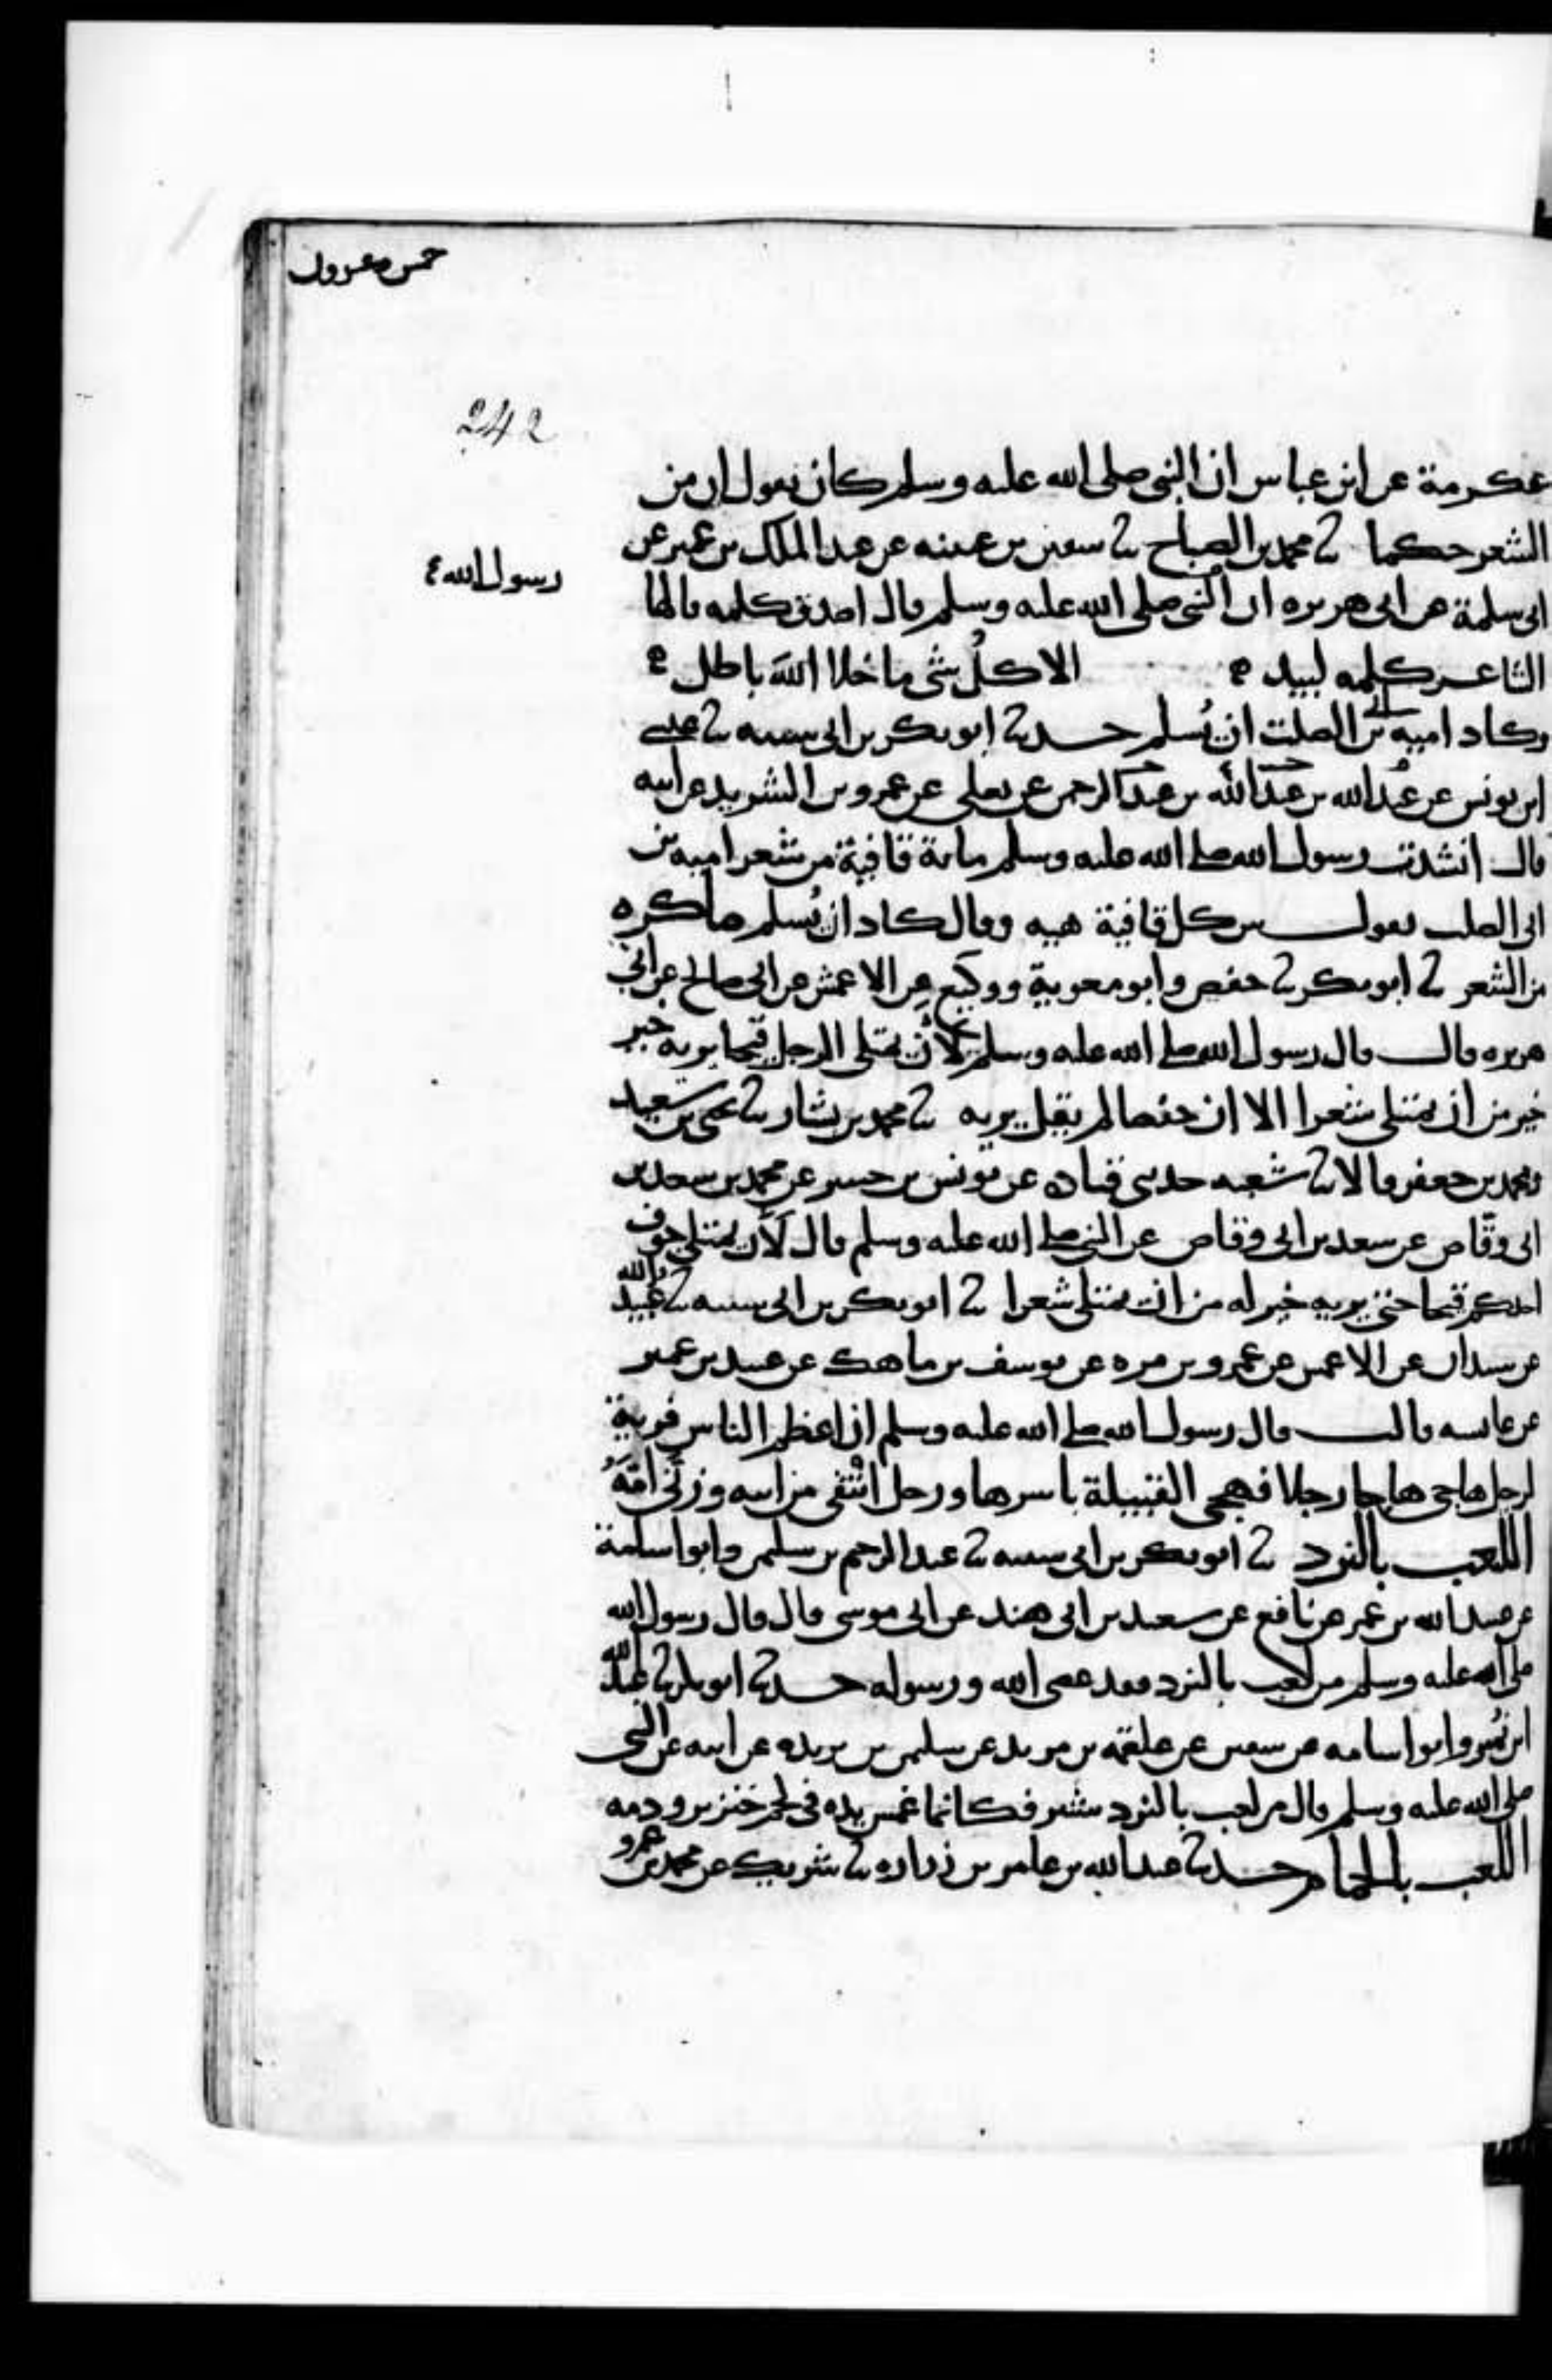 خمس وعرون
242
عكرمة عن ابن عباس ان النبى صلى الله عليه وسلم كان يقول ان من
الشعر حكما ثنا محمد بن الصباح ثنا سفين بن عيينه عن عبد الملك بن عمير عن
رسول الله ع
ابى سلمة عن ابى هريره ان النبى صلى الله عليه وسلم قال اصدق كلمه قالها
الشاعر كلمه لبيد ه الا كلُ شى ما خلا اللهَ باطل ه
وكاد اميه بن ابى الصلت ان يُسلم حدثنا ابو بكر بن ابى شيبه ثنا عيسى
ابن يونس عن عبد الله بن عبد الله بن عبد الرحمن عن يعلى عن عمرو بن الشريد عن ابيه
قال انشدت رسول الله صلى الله عليه وسلم ماية قافية من شعر اميه بن
ابى الصلت يقول بين كل قافية هيه وقال كاد ان يُسلم ما كره
من الشعر ثنا ابو بكر ثنا حفص وابو معوية ووكيع عن الاعمش عن ابى صالح عن ابى
هريره قال قال رسول الله صلى الله عليه وسلم لأن يمتلى الرجل قيحا يريه خير
خير من ان يمتلى شعرا الا ان حفصا لم يقل يريه ثنا محمد بن بشار ثنا يحيى بن سعيد
ومحمد بن جعفر قالا ثنا شعبه حدثنى قتاده عن يونس بن جبير عن محمد بن سعد بن
ابى وقّاص عن سعد بن ابى وقاص عن النبى صلى الله عليه وسلم قال لَأن يمتلى جوف
احدكم قيحا حتى يريه خير له من ان يمتلى شعرا ثنا ابو بكر بن ابى شيبه ثنا عُبيد الله
عن شيبان عن الاعمش عن عمرو بن مره عن يوسف بن ماهك عن عبيد بن عمير
عن عائشه قالت قال رسول الله صلى الله عليه وسلم ان اعظم الناس فرية
لرجل هاجى هاجا رجلا فهجى القبيلة باسرها ورجل انتفى من ابيه وزنّى امّهُ
اللعب بالنرد ثنا ابو بكر بن ابى شيبه ثنا عبد الرحيم بن سليمن وابو اسامة
عن عبيد الله بن عمر عن نافع عن سعيد بن ابى هند عن ابى موسى قال قال رسول الله
صلى الله عليه وسلم من لعب بالنرد فقد عصى الله ورسوله حدثنا ابو بكر ثنا عبد الله
ابن نُمير وابو اسامه عن سفين عن علقمه بن مرثد عن سليمن بن بريده عن ابيه عن النبى
صلى الله عليه وسلم قال من لعب بالنرد شير فكانما غمس يده فى لحم خنزير ودمه
اللعب بالحمام حدثنا عبد الله بن عامر بن زراره ثنا شريك عن محمد بن عمرو